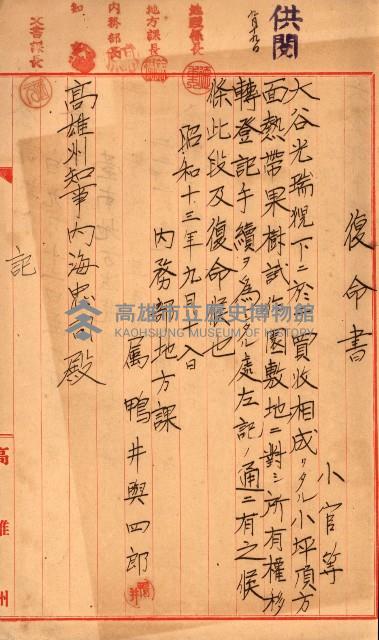 供閲
九月十九日
地理係長
地方課長
内務部長
知事
文書課長
復命書
小官等
大谷光瑞猊下ニ於テ買收相成リタル小坪頂方
面熱帶果樹試作園敷地ニ對シ所有權移
轉登記手續ヲ為シタル處左記ノ通ニ有之候
條此段及復命候也
昭和十三年九月十八日
内務部地方課
属 鴨井與四郎
高雄州知事内海忠司殿
記
高雄州
高雄市立歷史博物館
KAOHSIUNG MUSEUM OF HISTORY